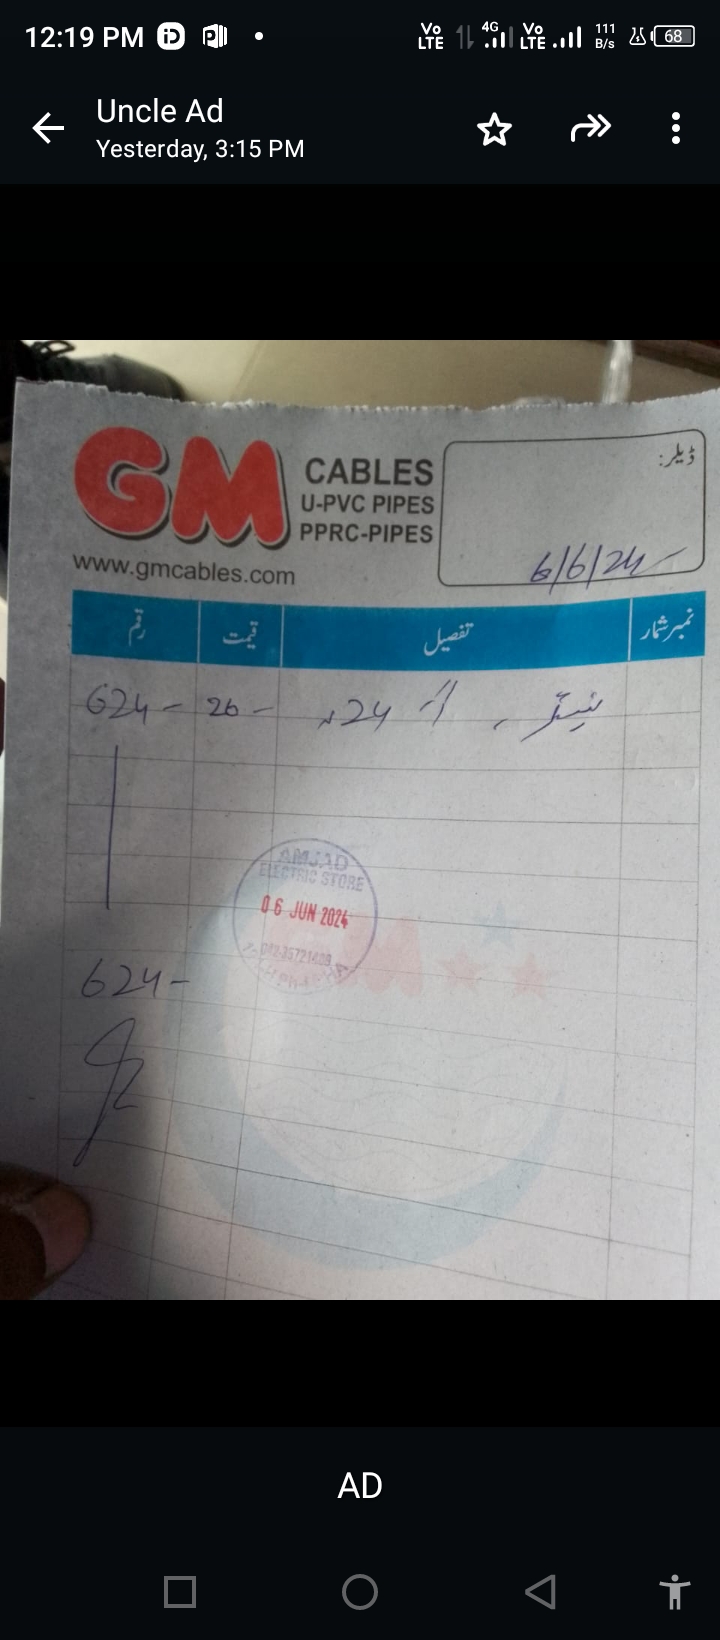 12:19 PM
Vo LTE 4G Vo LTE 111 B/s 68
Uncle Ad
Yesterday, 3:15 PM
GM
CABLES
U-PVC PIPES
PPRC-PIPES
www.gmcables.com
ڈیلر:
6/6/24
نمبر شمار تفصیل قیمت رقم
24 26 - 624 -
AMJAD
ELECTRIC STORE
06 JUN 2024
624-
AD